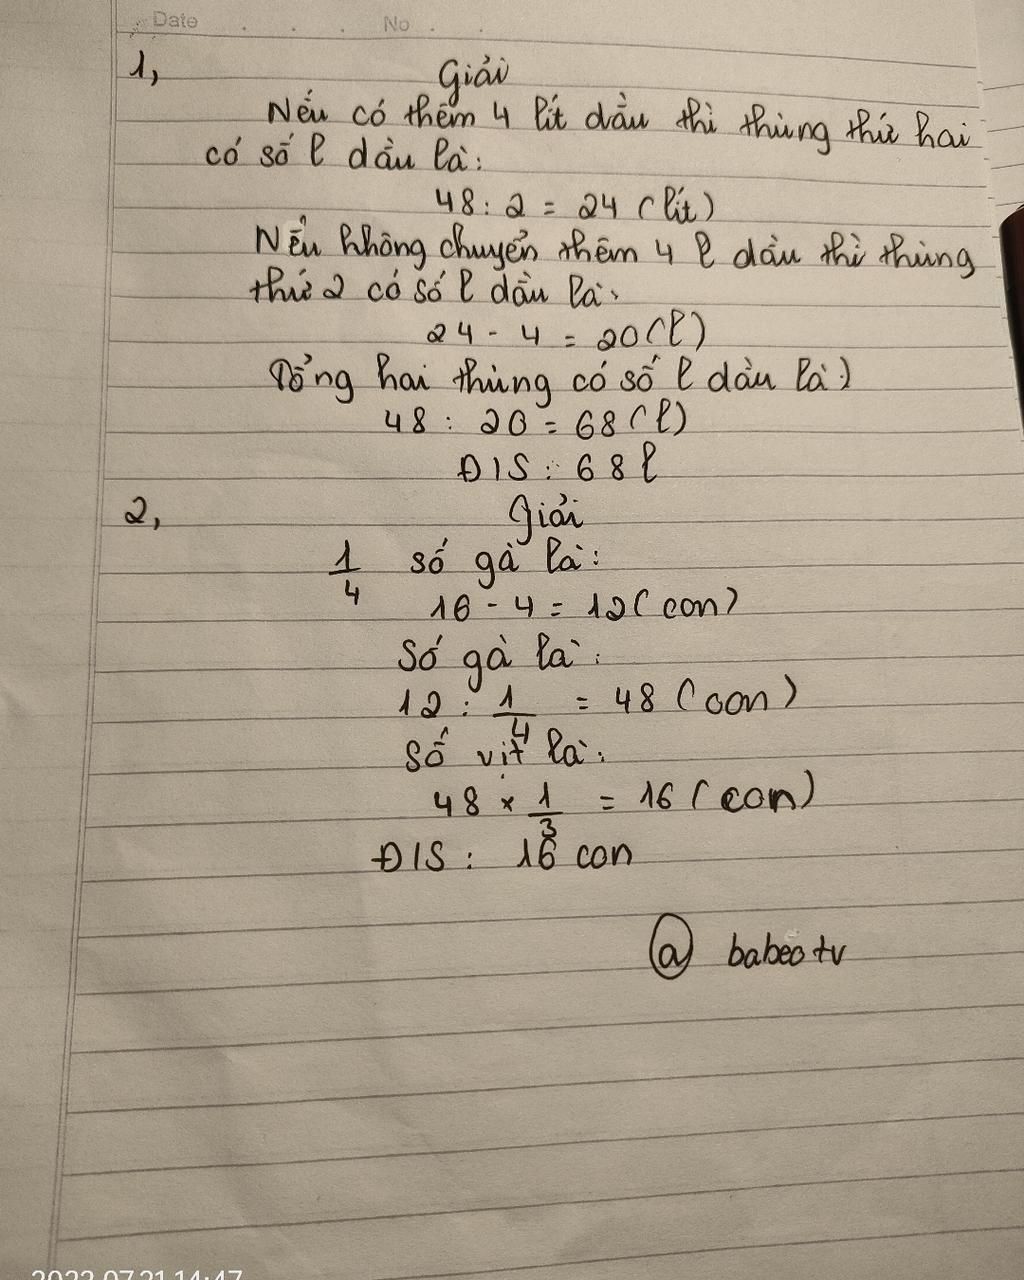 Date . . . No . .
1,
Giải
Nếu có thêm 4 lít dầu thì thùng thứ hai
có số l dầu là:
48 : 2 = 24 (lít)
Nếu không chuyển thêm 4 l dầu thì thùng
thứ 2 có số l dầu là:
24 - 4 = 20 (l)
Tổng hai thùng có số l dầu là:
48 : 20 = 68 (l)
Đ/S : 68 l
2,
Giải
1/4 số gà là:
16 - 4 = 12 (con)
Số gà là:
12 : 1/4 = 48 (con)
Số vịt là:
48 × 1/3 = 16 (con)
Đ/S : 16 con
@ babeo tv
2022.07.21 14:47